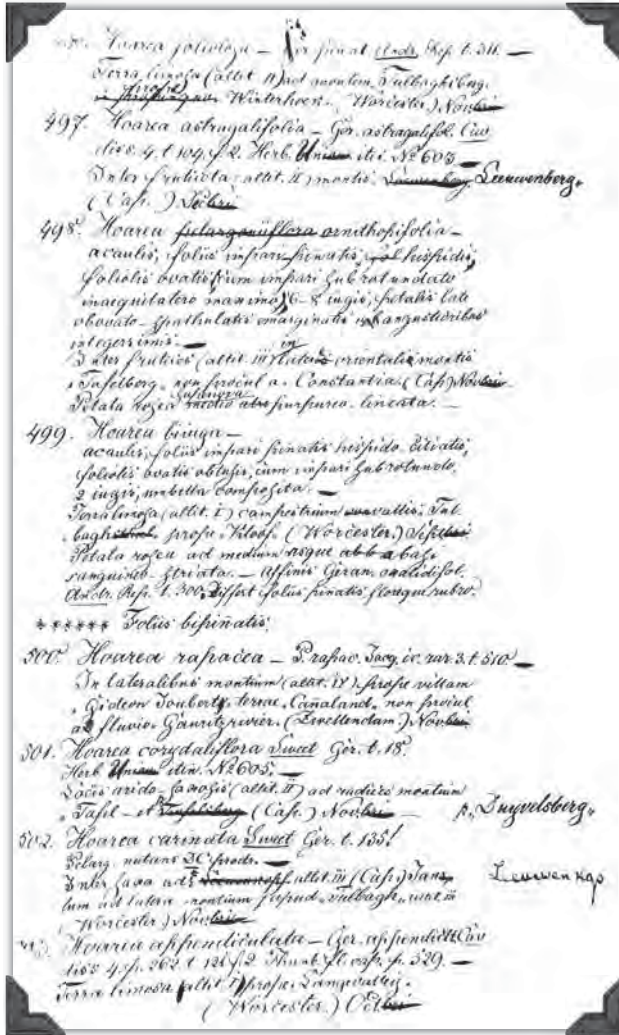 Hoarea foliolosa — Ger. pinat Andr. Rep. t. 311. —
Terra limosa (altit. II) ad montem Tulbaghsberg
Winterhoek. (Worcester.) Novbri
497. Hoarea astragalifolia — Ger. astragalifol. Cav
diss. 4. t. 104. f. 2. Herb. Union. itin. No 603 —
Inter fruticeta (altit. II) montis Leeuwenberg.
(Cap.) Octbri
498. Hoarea pelargoniiflora ornithopifolia —
acaulis, foliis impari pinnatis hispidis,
foliolis ovatis cum impari subrotundato
inaequilatero maximo, 6-8 iugis, petalis late
obovato-spathulatis emarginatis angustioribus
integerrimis. —
Inter frutices (altit. III) in lateris orientalis montis
"Tafelberg" non procul a Constantia. (Cap.) Novbri
Petala rosea medio atropurpurea lineata. —
499. Hoarea biiuga —
acaulis, foliis impari pinatis hispido ciliatis,
foliolis ovatis obtusis, cum impari subrotundo,
2 iugis, umbella composita. —
Terra limosa (altit. I) campestrium vallis Tul-
bagh prope "Kloof". (Worcester.) Septbri
Petala rosea ad medium usque a basi
sanguineo-striata. — Affinis Geran. oxalidifol.
Andr. Rep. t. 300. Differt foliis pinatis floreque rubro.
****** Foliis bipinatis.
500. Hoarea rapacea — P. rapac. Jacq. ic. rar. 3. t. 510. —
In lateralibus montium (altit. IV) prope villam
"Gideon Joubert", terrae "Canaland", non procul
a fluvio "Gauritzrivier". (Zwellendam.) Novbri
501. Hoarea corydaliflora Sweet Ger. t. 18.
Herb. Union itin. No 605. —
Locis arido-saxosis (altit. II) ad radices montium
"Tafel- et (Cap.) Novbri — p. "Duyvelsberg"
502. Hoarea carinata Sweet Ger. t. 135!
Pelarg. nutans DC prodr. —
Inter saxa ad altit. III (Cap.) Tans, Leeuwenkop
tum ad latera montium Tulbagh, alt. III
(Worcester.) Novbri
Hoarea appendiculata — Ger. appendicul. Cav
diss 4. p. 262. t. 121. f. 2. Thunb. fl. cap. p. 529. —
Terra limosa (altit. I) prope Langevalley.
(Worcester.) Octbri